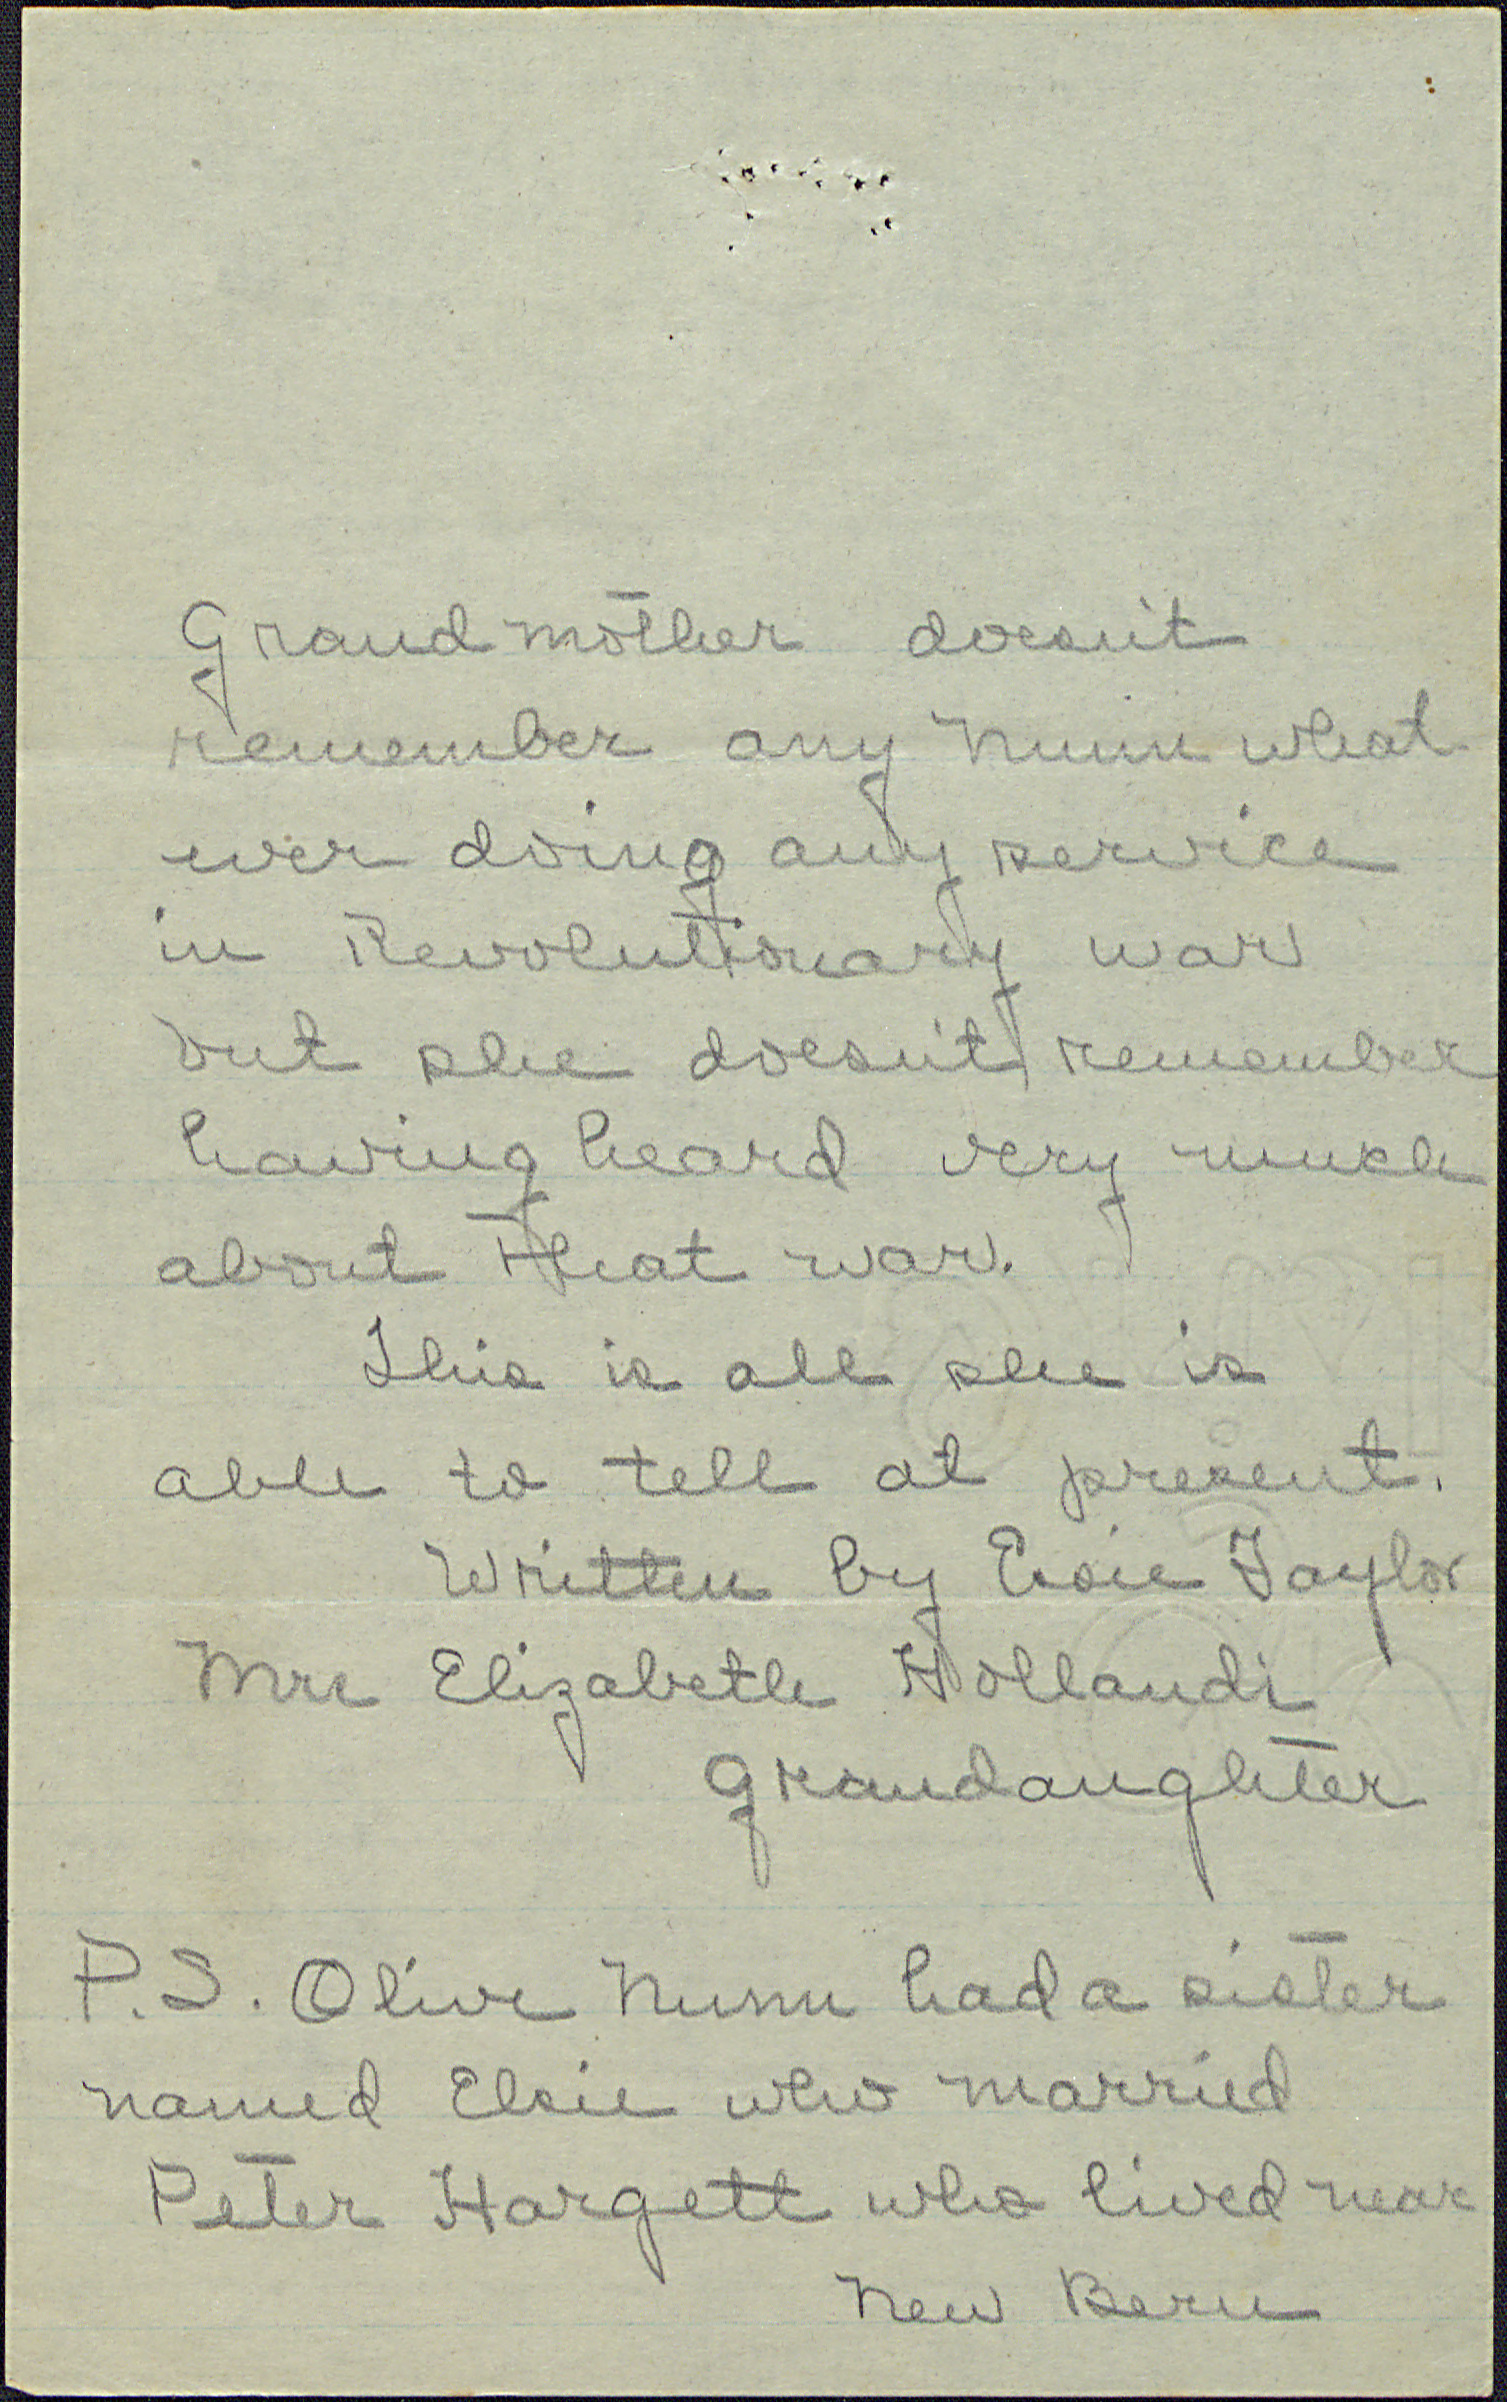 Grandmother doesn't
remember any Nunn what
ever doing any service
in Revolutionary war
but she doesn't remember
having heard very much
about that war.
This is all she is
able to tell at present.
Written by Essie Taylor
Mrs Elizabeth Hollands
grandaughter
P.S. Olive Nunn had a sister
named Elsie who married
Peter Hargett who lived near
New Bern